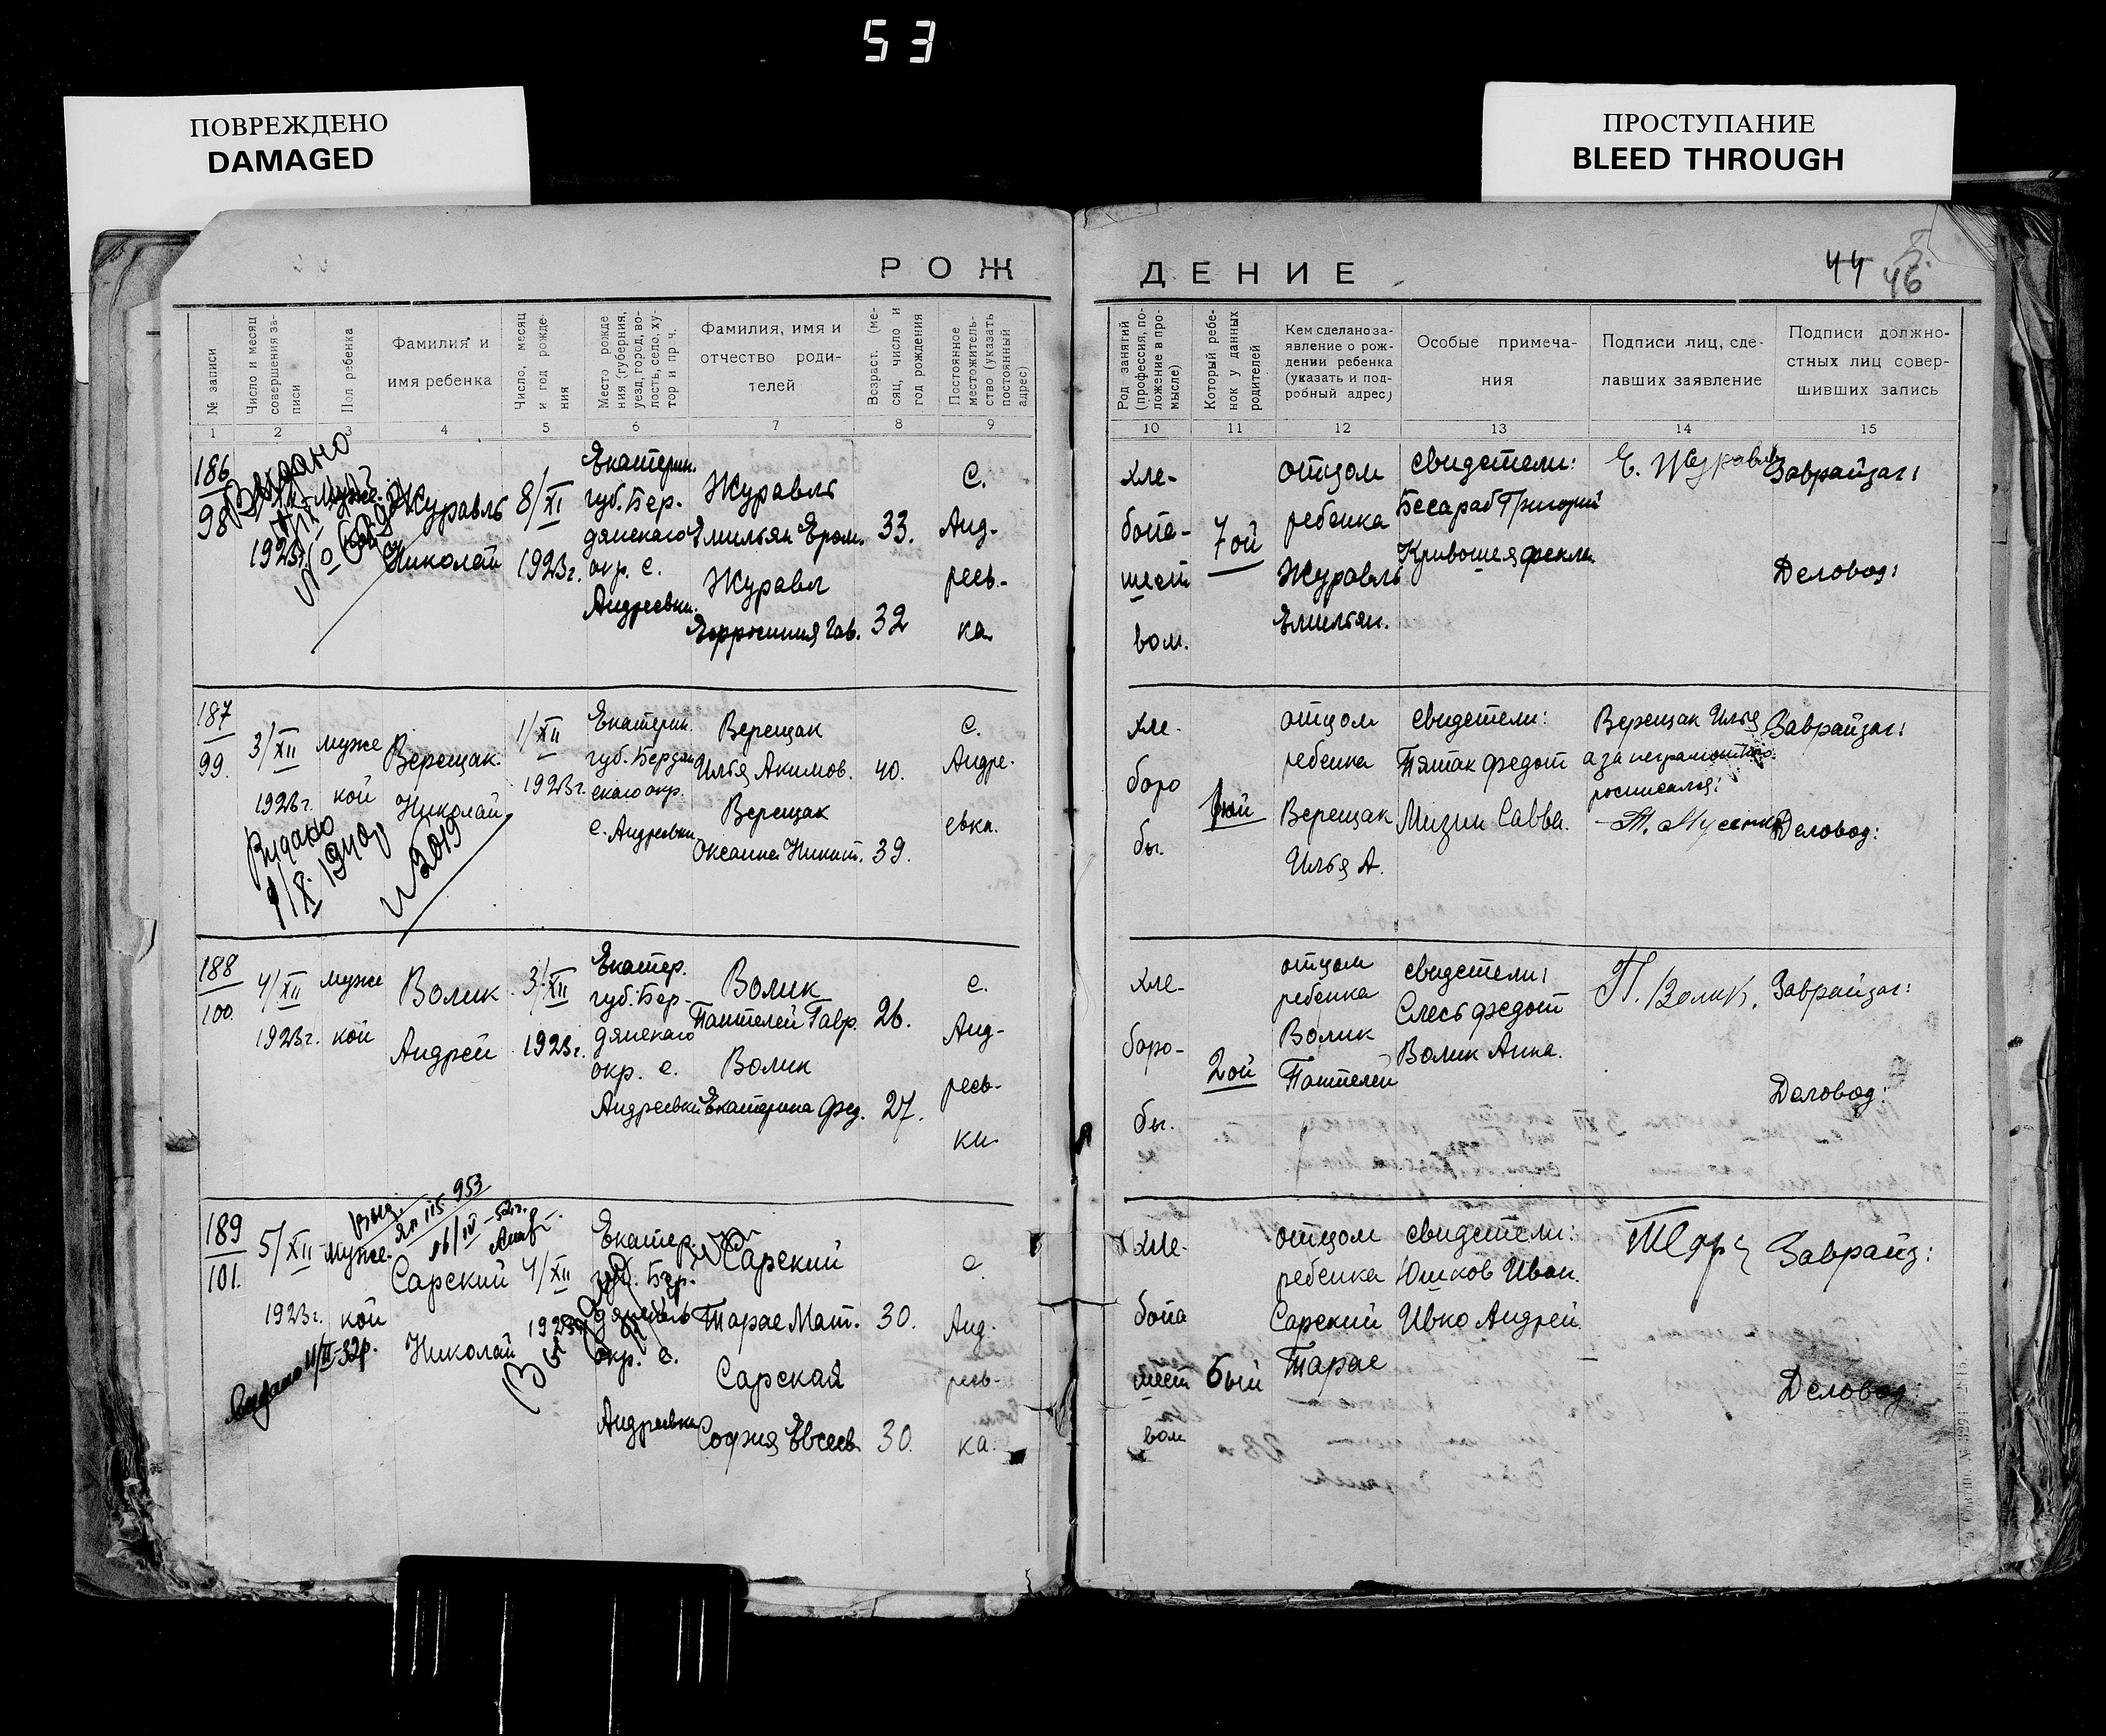 53
ПОВРЕЖДЕНО
DAMAGED
ПРОСТУПАНИЕ
BLEED THROUGH
РОЖДЕНИЕ
44
46
№ записи
Число и месяц совершения записи
Пол ребенка
Фамилия и
имя ребенка
Число, месяц
и год рожде-
ния
Место рожде
ния (губерния,
уезд, город, во-
лость, село, ху-
тор и проч.
Фамилия, имя и
отчество роди-
телей
Возраст. (ме-
сяц, число и
год рождения
Постоянное
местожитель-
ство (указать
постоянный
адрес)
Род занятий
(профессия, по-
ложение в про-
мысле)
Который ребе-
нок у данных
родителей
Кем сделано за-
явление о рож-
дении ребенка
(указать и под-
робный адрес)
Особые примеча-
ния
Подписи лиц, сде-
лавших заявление
Подписи должно-
стных лиц совер-
шивших запись
1 2 3 4 5 6 7 8 9 10 11 12 13 14 15
186
98
Выдано
1923г.
Журавль
Николай
8/XI
1923г.
Екатерин.
губ. Бер-
дянскаго
окр. с.
Андреевки.
Журавль
Емильян Ером.
Журавл
Гав.
33.
32
С.
Анд-
реев-
ка
хле-
бопа-
шест
вом.
7ой
отцом
ребенка
Журавль
Емильян.
свидетели:
Бесараб Григорий
Кривошея Фекла
Е. Журавль
Заврайзаг:
Деловод:
187
99.
3/XII
1923г.
муже
кой
Верещак.
Николай
1/XII
1923г.
Екатерин.
губ. Бердян
скаго окр.
с. Андреевки
Верещак
Илья Акимов.
Верещак
Оксания Никит.
40.
39.
с.
Андре-
евка.
хле-
боро
бы.
отцом
ребенка
Верещак
Илья А.
свидетели:
Пятак Федот
Мизин Савва.
Верещак Илья
а за неграмотнаго
росписался:
Заврайзаг:
Деловод:
Видано
9/X 1940р
№ 2019
188
100.
4/XII
1923г.
муже
кой
Волик
Андрей
3/XII
1923г.
Екатер.
губ. Бер-
дянскаго
окр. с.
Андреевки
Волик
Пантелей Гавр.
Волик
Екатерина Фед.
26.
27.
с.
Анд-
реев-
ки
хле-
боро-
бы.
2ой
отцом
ребенка
Волик
Пантелей
свидетели:
Слесь Федот
Волик Анна.
П. Волик.
Заврайзаг:
Деловод:
189
101.
5/XII
1923г.
муже-
кой
Сарский
Николай
4/XII
1923г.
Екатер.
губ. Бер-
окр. с.
Андреевка
Сарский
Тарас Мат.
Сарская
София Евсеев
30.
30.
с.
Анд-
реев-
ка.
хле-
бопа
шест
вом
6ый
отцом
ребенка
Сарский
Тарас
свидетели:
Юшков Иван.
Ивко Андрей
Заврайз:
Деловод: